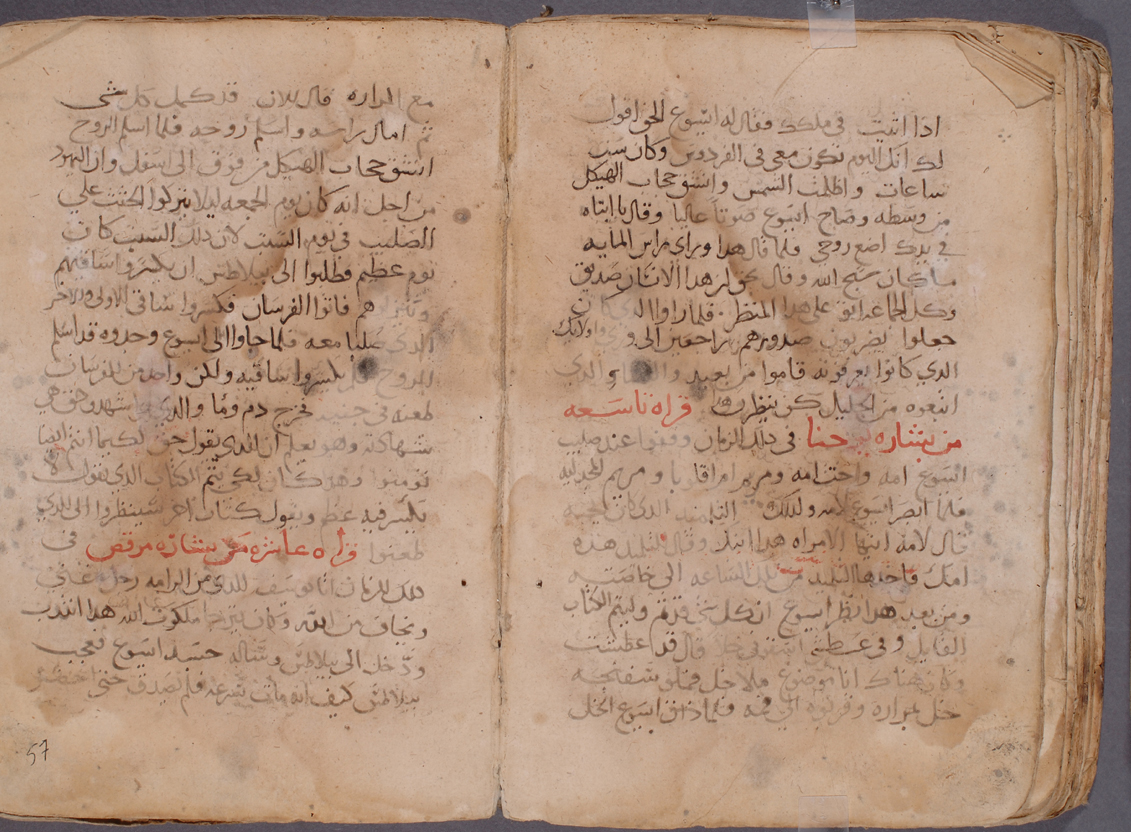 اذا اتيت في ملكك فقال له ايسوع الحق اقول
لك انك اليوم تكون معي في الفردوس وكان ست
ساعات واظلمت الشمس وانشق حجاب الهيكل
من وسطه وصاح ايسوع صوتاً عالياً وقال يا ابتاه
في يدك اضع روحي فلما قال هدا وراي راس المايه
ما كان سبح الله وقال حق ان هدا الانسان صديق
وكل الجماعه اتو على هدا المنظر فلما راوا الدي كان
جعلوا يضربون صدورهم راجعين الى وري واولايك
الدي كانوا يعرفونه قاموا من بعيد والنساء الدي
اتبعوه من الجليل كن ينظرن هدا قراه تاسعه
من بشاره يوحنا في دلك الزمان وقفوا عند صليب
ايسوع امه واخت امه ومريم امراة اقلاوبا ومريم المجدليه
فلما ابصر ايسوع لامه ودلك التلميد الدي كان يحبه
قال لامه ايتها الامراه هدا ابنك وقال لتلميد هده
امك فاخدها التلميد من تلك الساعه الى خاصته
ومن بعد هدا نظر ايسوع ان كل شي قد تم وليتم الكتاب
القايل وفي عطشي اسقوني خل قال قد عطشت
وكان هناك انا موضوع ملا خل فملو سفنجه
خل بمراره وقربوه الى فيه فلما ذاق ايسوع الخل
مع المراره قال للان قد كمل كل شي
ثم امال راسه واسلم روحه فلما اسلم الروح
انشق حجاب الهيكل من فوق الى اسفل وان اليهود
من اجل انه كان يوم الجمعه ليلا يتركوا الجثث علي
الصليب في يوم السبت لان دلك السبت كان
يوم عظيم فطلبوا الى بيلاطس ان يكسروا ساقيهم
وينزلوهم فاتوا الفرسان فكسروا ساقي الاولى والاخر
الدي صلبا معه فلما جاوا الى ايسوع وجدوه قد اسلم
الروح فلم يكسروا ساقيه ولكن واحد من الفرسان
طعنه في جنبه فخرج دم وما والدي شهد وحق هي
شهادته وهو يعلم ان الدي يقول حق لكيما انتم ايضا
تومنوا وهدا كان لكي يتم الكتاب الدي يقول لا
يكسر فيه عظم ويقول كتاب اخر سينظروا الى الدي
طعنوا قراه عاشره من بشاره مرقص في
دلك الزمان اتا يوسف الدي من الرامه رجل غني
ويخاف من الله وكان يترجا ملكوت الله هدا انتدب
ودخل الى بيلاطس وساله جسد ايسوع فعجب
بيلاطس كيف انه مات بسرعه فلم يصدق حتى احضر
57